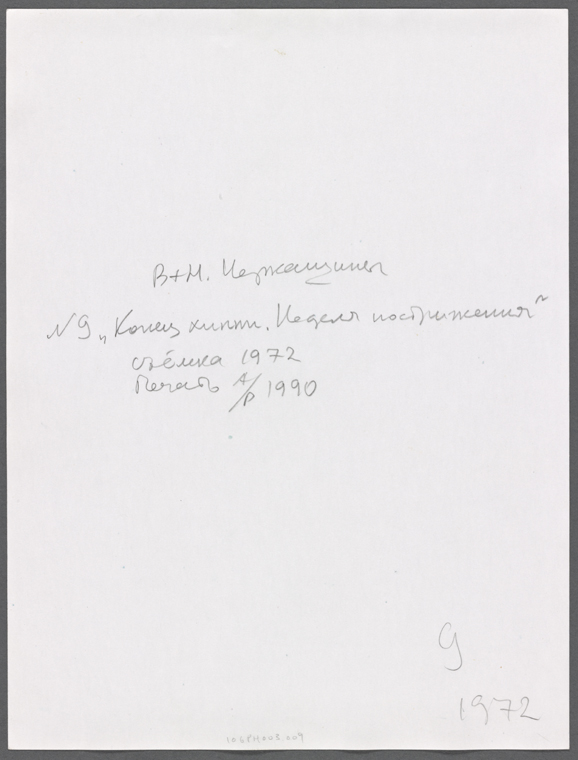 В+Н. Черкашины
N 9 „Конец хиппи. Неделя пострижения"
съёмка 1972
Печать А/Р 1990
9
1972